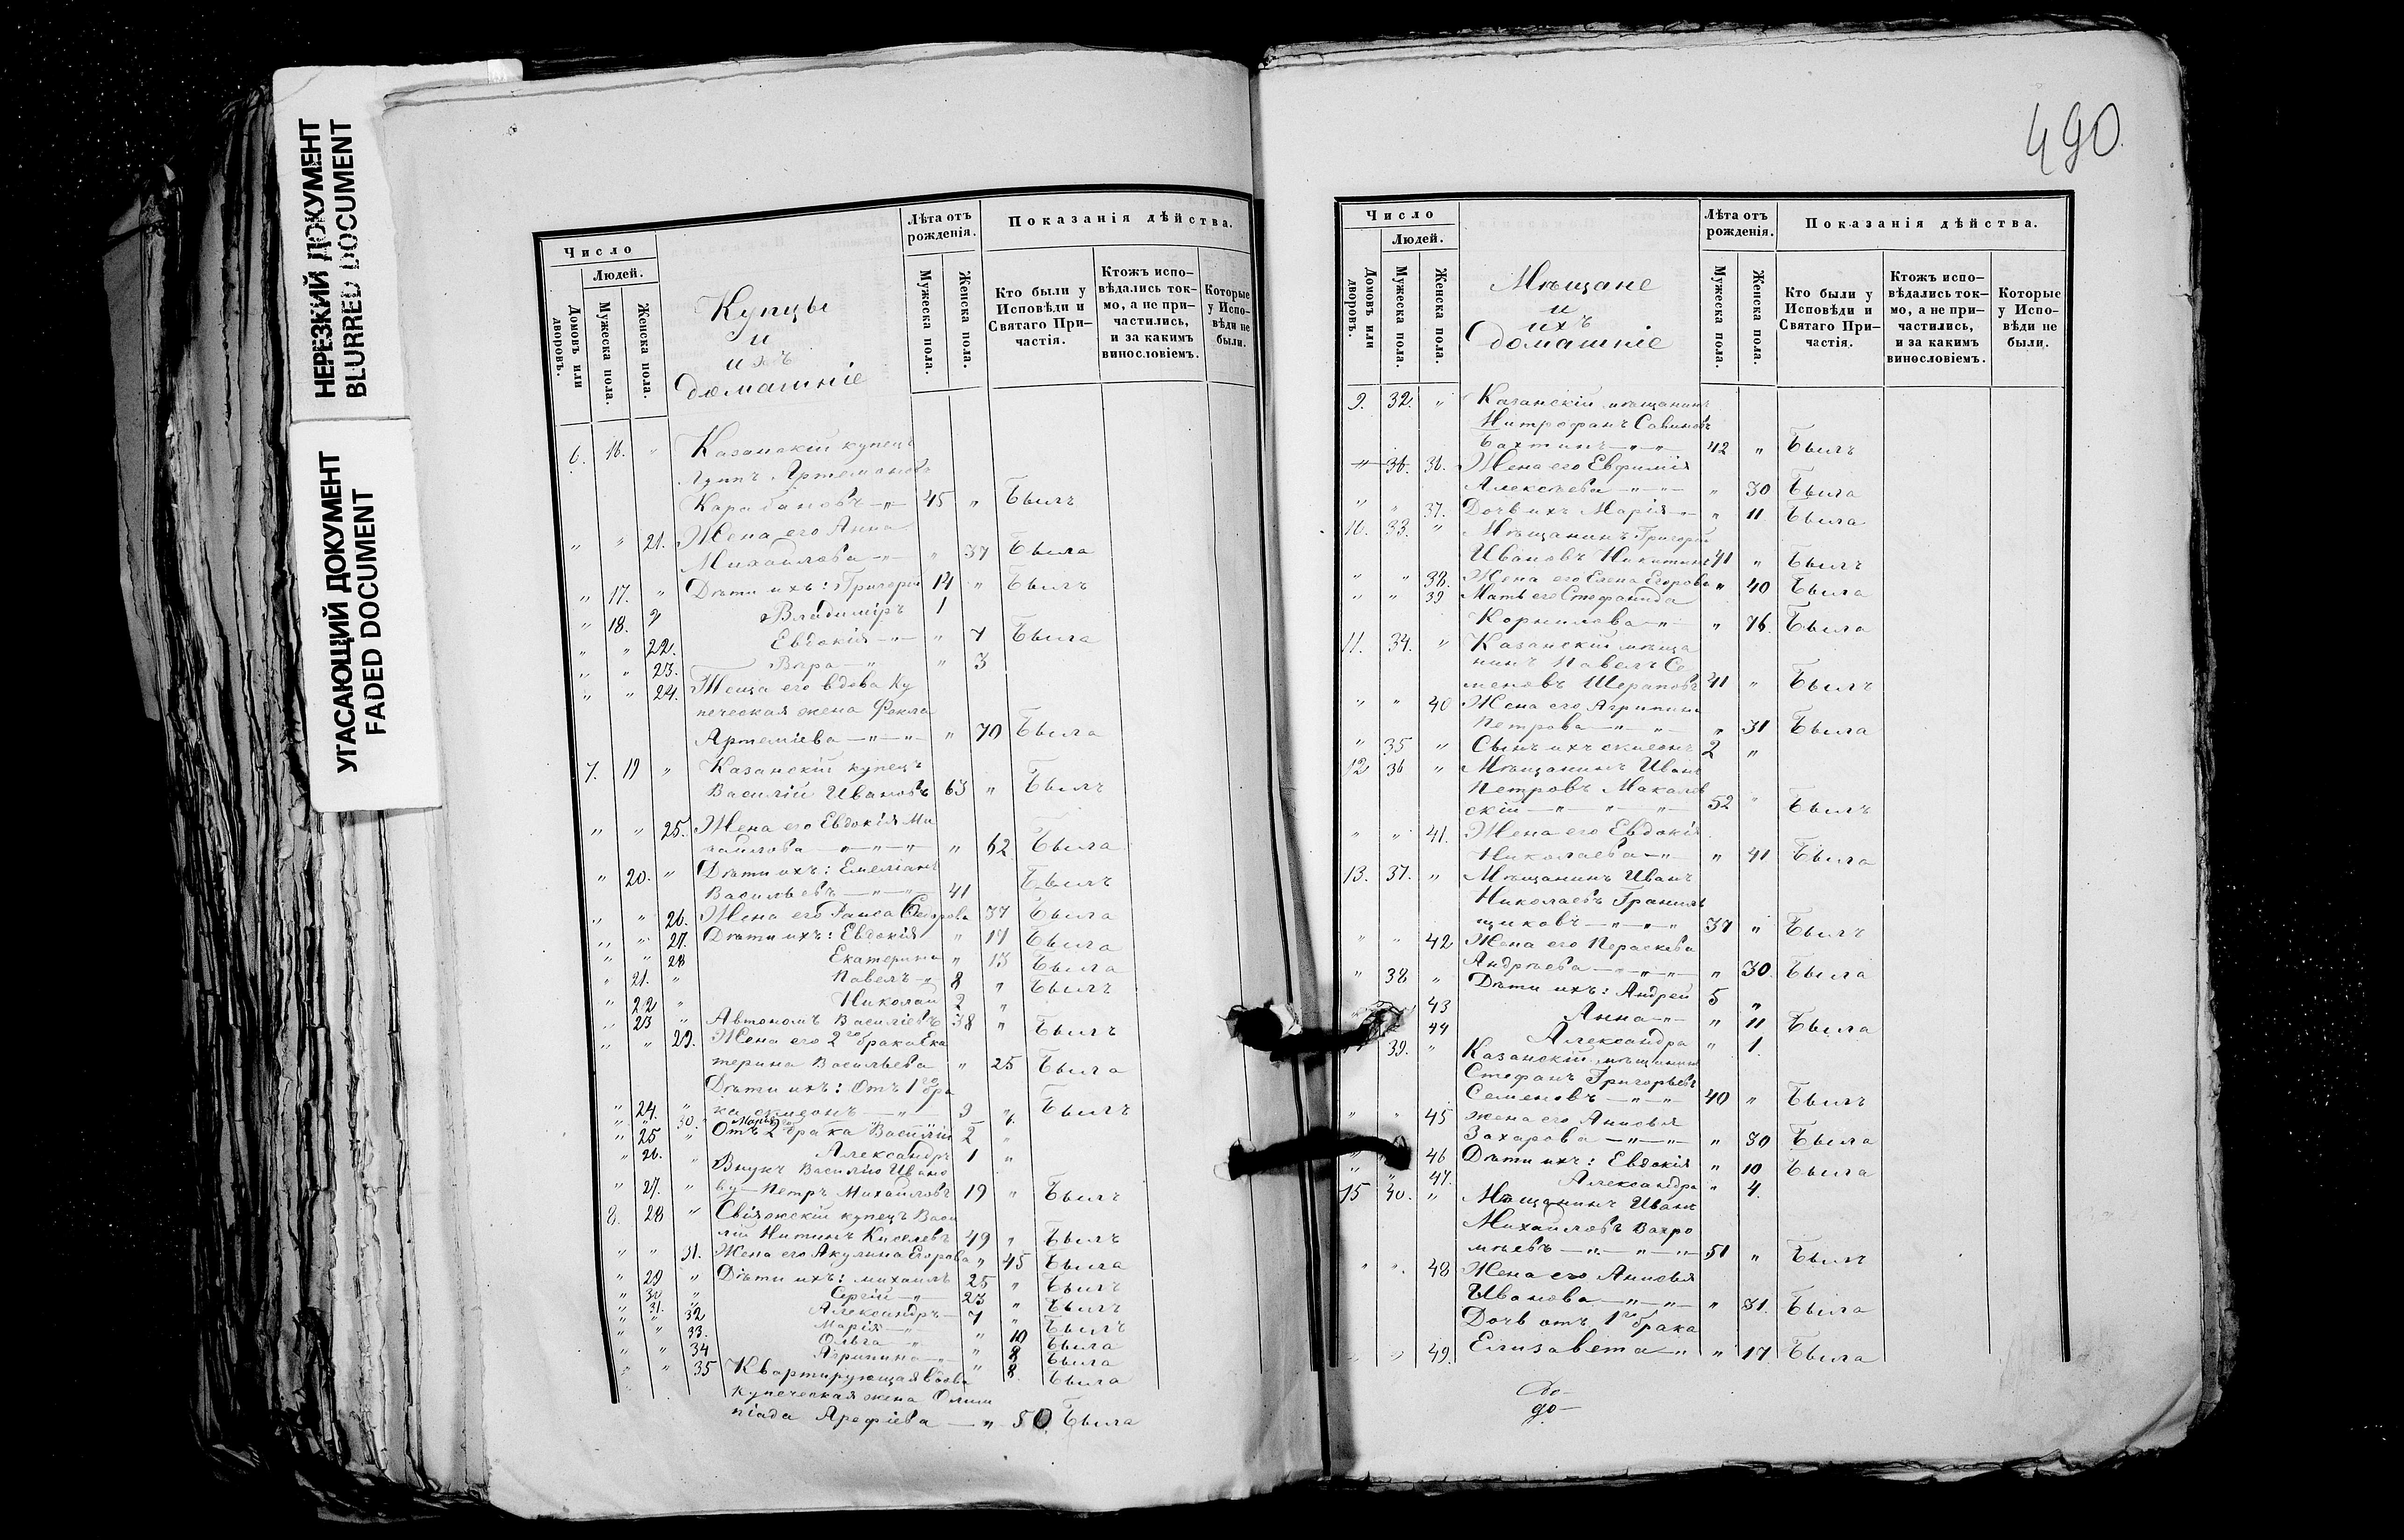 НЕРЕЗКИЙ ДОКУМЕНТ
BLURRED DOCUMENT
УГАСАЮЩИЙ ДОКУМЕНТ
FADED DOCUMENT
Число
Людей.
Домовъ или дворовъ.
Мужеска пола.
Женска пола.
Купцы
и
ихъ
домашніе
Лѣта отъ рожденія.
Мужеска пола.
Женска пола.
Показанія дѣйства.
Кто были у Исповѣди и Святаго Причастія.
Ктожъ исповѣдались токмо, а не причастились, и за какимъ винословіемъ.
Которые у Исповѣди не были.
6. 16. " Казанскій купецъ
Артемоновъ
Карабановъ — " 45 " Былъ
" " 21. Жена его Анна
Михайлова — " " 37 Была
" 17. " Дѣти ихъ: Григорій 14 " Былъ
" 18. " Владиміръ 1
" " 22. Евдокія — " " 7 Была
" " 23. Вѣра — " " 3
" " 24. Теща его вдова ку
печеская жена Фекла
Артеміева — " — " " 70 Была
7. 19 " Казанскій купецъ
Василій Ивановъ 63 " Былъ
" " 25. Жена его Евдокія Ми
хайлова — " — " " 62 Была
" 20. " Дѣти ихъ: Емеліанъ
Васильевъ — " — " 41 Былъ
" " 26. Жена его Раиса Егорова 37 Была
" " 27. Дѣти ихъ: Евдокія " 17 Была
" " 28 Екатерина " 13 Была
" 21. " Павелъ — " 8 " Былъ
" 22 " Николай 2 "
" 23 " Автономъ Василіевъ 38 " Былъ
" " 29. Жена его 2го брака Ека
терина Васильева " 25 Была
Дѣти ихъ: Отъ 1го бра
" 24. " ка — " 9 " Былъ
" " 30. Марія
" 25 " Отъ 2го брака Василій 2 "
" 26. " Александръ 1 "
Внукъ Василію Ивано
" 27. " ву — Петръ Михайловъ 19 " Былъ
8. 28 " Свіяжскій купецъ Васи
лій Киселевъ 49 " Былъ
" " 31. Жена его Акулина Егорова " 45 Была
" 29 " Дѣти ихъ: Михаилъ 25 " Былъ
" 30 " Сергій — " 23 " Былъ
" 31. " Александръ — 7 " Былъ
" " 32 Марія — " " 10 Была
" " 33. Ольга — " " 8 Была
" " 34 Агрипина — " " 8 Была
" " 35 Квартирующая вдова
купеческая жена Олим
піада Арефіева — " 50 Была
490
Число
Людей.
Домовъ или дворовъ.
Мужеска пола.
Женска пола.
Мѣщане
и
ихъ
домашніе
Лѣта отъ рожденія.
Мужеска пола.
Женска пола.
Показанія дѣйства.
Кто были у Исповѣди и Святаго Причастія.
Ктожъ исповѣдались токмо, а не причастились, и за какимъ винословіемъ.
Которые у Исповѣди не были.
9. 32. " Казанскій мѣщанинъ
Митрофанъ Савиновъ
Бахтинъ — " — " 42 " Былъ
36. Жена его Евфимія
Алексѣева — " — " " 30 Была
" " 37. Дочь ихъ Марія — " " 11 Была
10. 33. " Мѣщанинъ Григорій
Ивановъ Никитинъ 41 " Былъ
" " 38. Жена его Елена Егорова " 40 Была
" " 39 Мать его Стефанида
Корнилова — " " 76 Была
11. 34. " Казанскій мѣща
нинъ Павелъ Се
меновъ Шераповъ 41 " Былъ
" " 40 Жена его Агрипина
Петрова — " — " " 31 Была
" 35 " Сынъ ихъ 2 "
12 36 " Мѣщанинъ Иванъ
Петровъ Макалов
скій — " — " — " 52 " Былъ
" " 41. Жена его Евдокія
Николаева — " " 41 Была
13. 37. " Мѣщанинъ Иванъ
Николаевъ Гранил
щиковъ — " — " 37 " Былъ
" " 42 Жена его Параскева
Андрѣева — " — " " 30. Была
" 38 " Дѣти ихъ: Андрей 5 "
43 Анна — " " 11 Была
44 Александра " 1.
39. " Казанскій мѣщанинъ
Стефанъ Григорьевъ
Семеновъ — " — " 40 " Былъ
" " 45 Жена его Анисья
Захарова — " — " " 30 Была
" 46 Дѣти ихъ: Евдокія " 10 Была
" " 47. Александра " 4.
15 40. " Мѣщанинъ Иванъ
Михайловъ Вахро
мѣевъ — " — " — " 51 " Былъ
" " 48 Жена его Анисья
Иванова — " — " " 31. Была
Дочь отъ 1го брака
" " 49. Елизавета — " " 17 Была